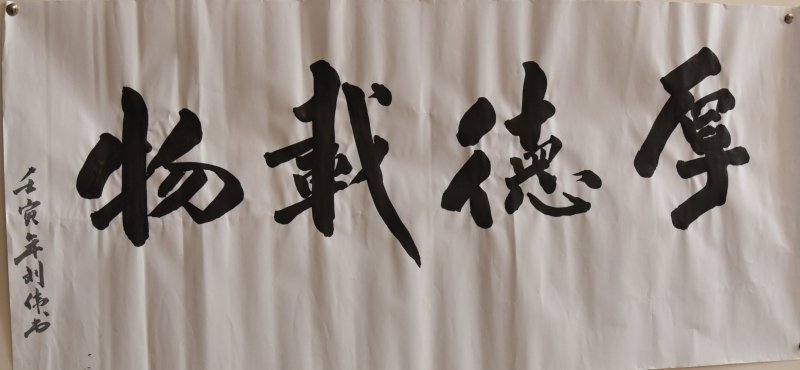 厚德载物
壬寅年利伟书